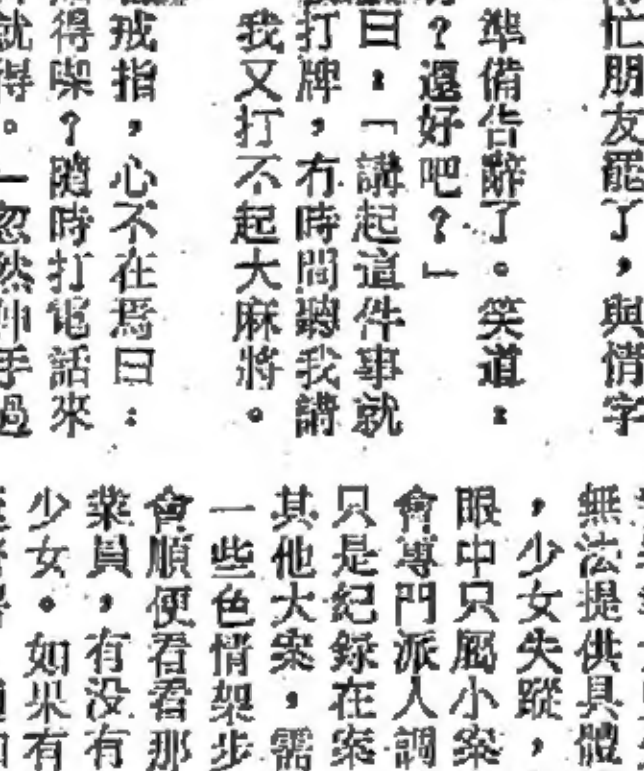 忙朋友罷了，與情字
準備告辭了。笑道：
？還好吧？」
曰：「講起這件事就
打牌，冇時間聽我講
我又打不起大麻將。
戒指，心不在焉曰：
得㗎？隨時打電話來
就得。」忽然伸手過
無法提供具體
，少女失蹤，
眼中只屬小案
會專門派人調
只是紀錄在案
其他大案，需
一些色情架步
會順便看看那
業員，有没有
少女。如果有